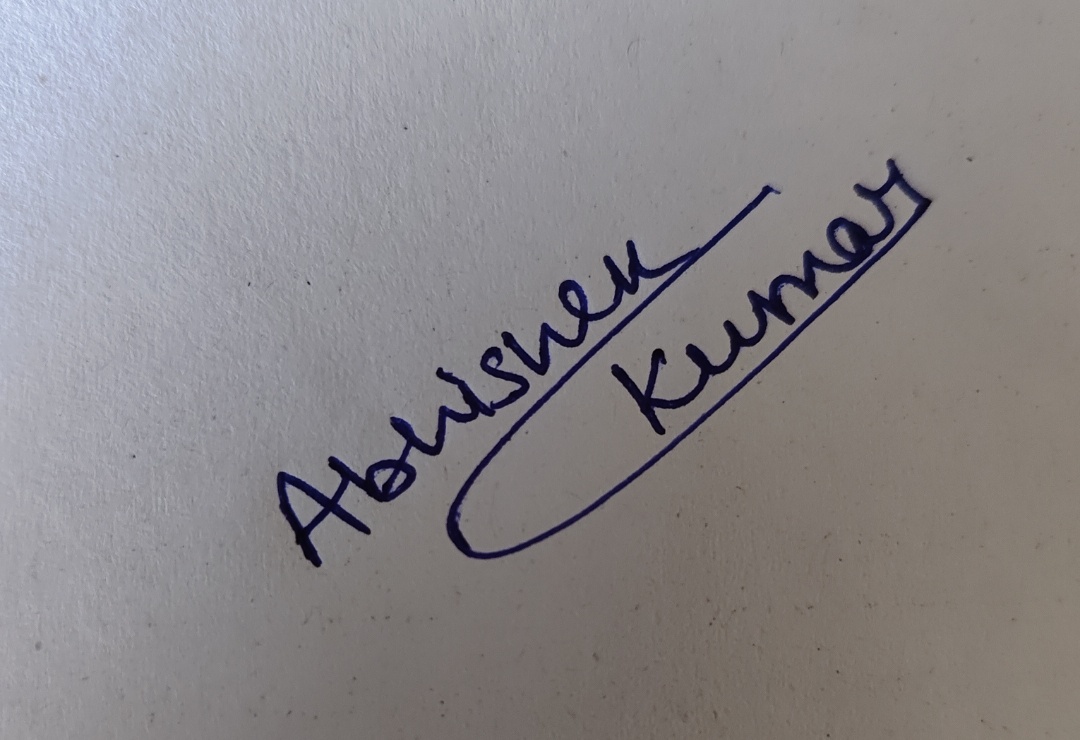 Abhishek
Kumar